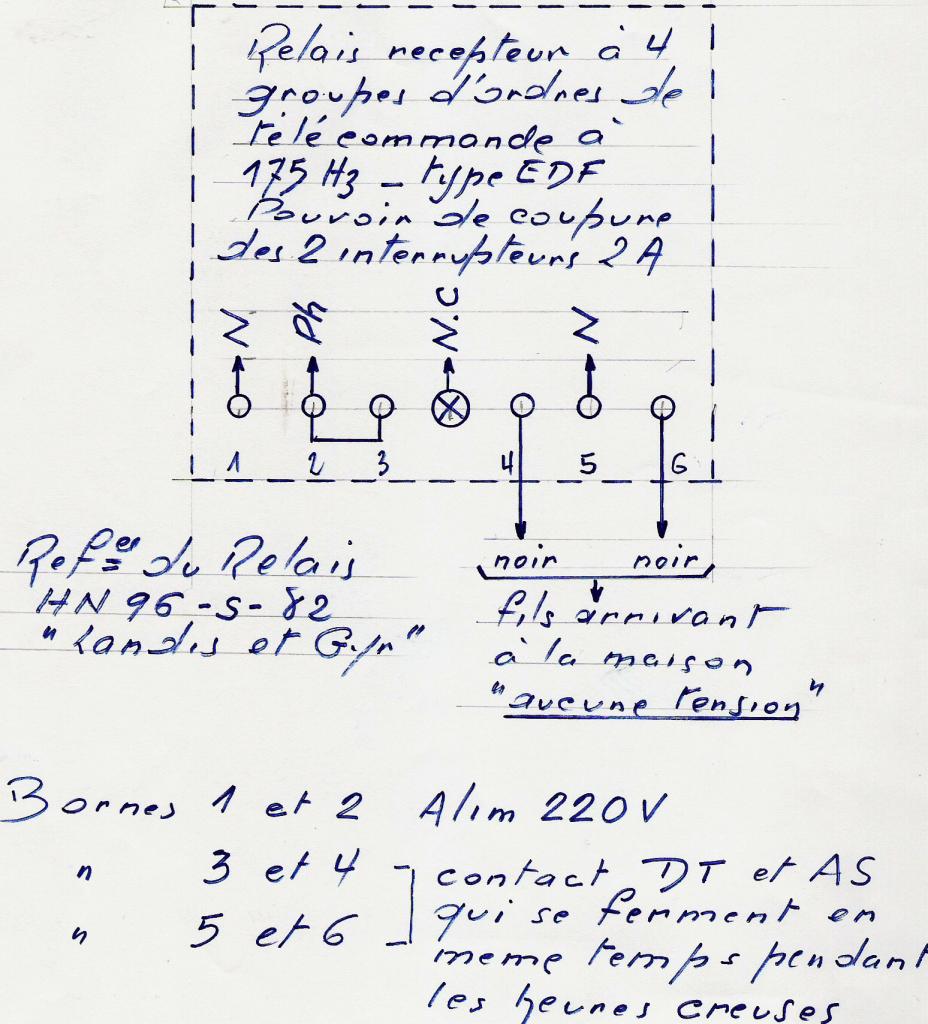 Relais recepteur à 4
groupes d'ordres de
télécommande à
175 Hz _ type EDF
Pouvoir de coupure
des 2 interrupteurs 2 A
N Ph N.C N
1 2 3 4 5 6
noir noir
Refces du Relais
HN 96 -S- 82
"Landis et Gyr"
fils arrivant
à la maison
"aucune tension"
Bornes 1 et 2 Alim 220V
" 3 et 4 contact DT et AS
qui se ferment en
" 5 et 6
meme temps pendant
les heures creuses